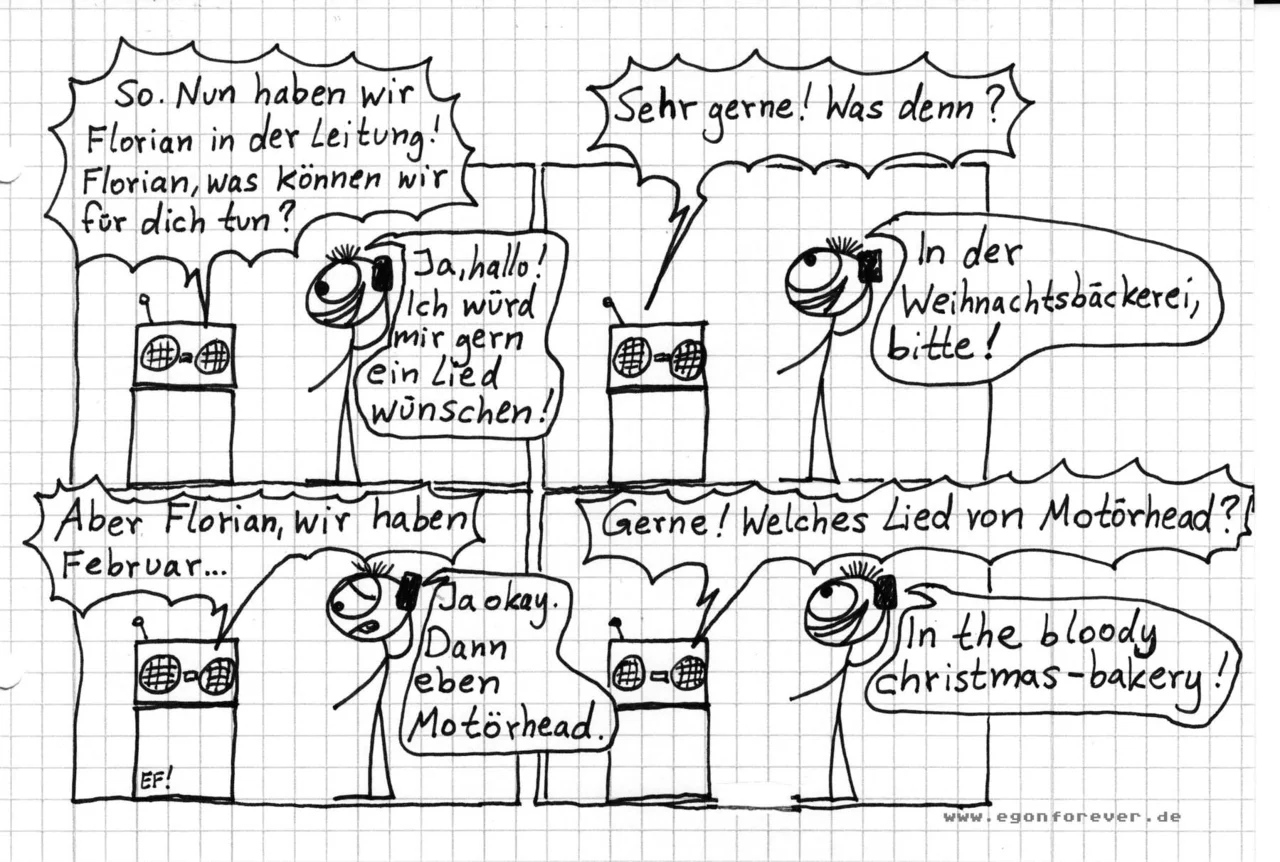 So. Nun haben wir
Florian in der Leitung!
Florian, was können wir
für dich tun?
Ja, hallo!
Ich würd
mir gern
ein Lied
wünschen!
Sehr gerne! Was denn?
In der
Weihnachtsbäckerei,
bitte!
Aber Florian, wir haben
Februar...
Ja okay.
Dann
eben
Motörhead.
EF!
Gerne! Welches Lied von Motörhead?
In the bloody
christmas-bakery!
www.egonforever.de